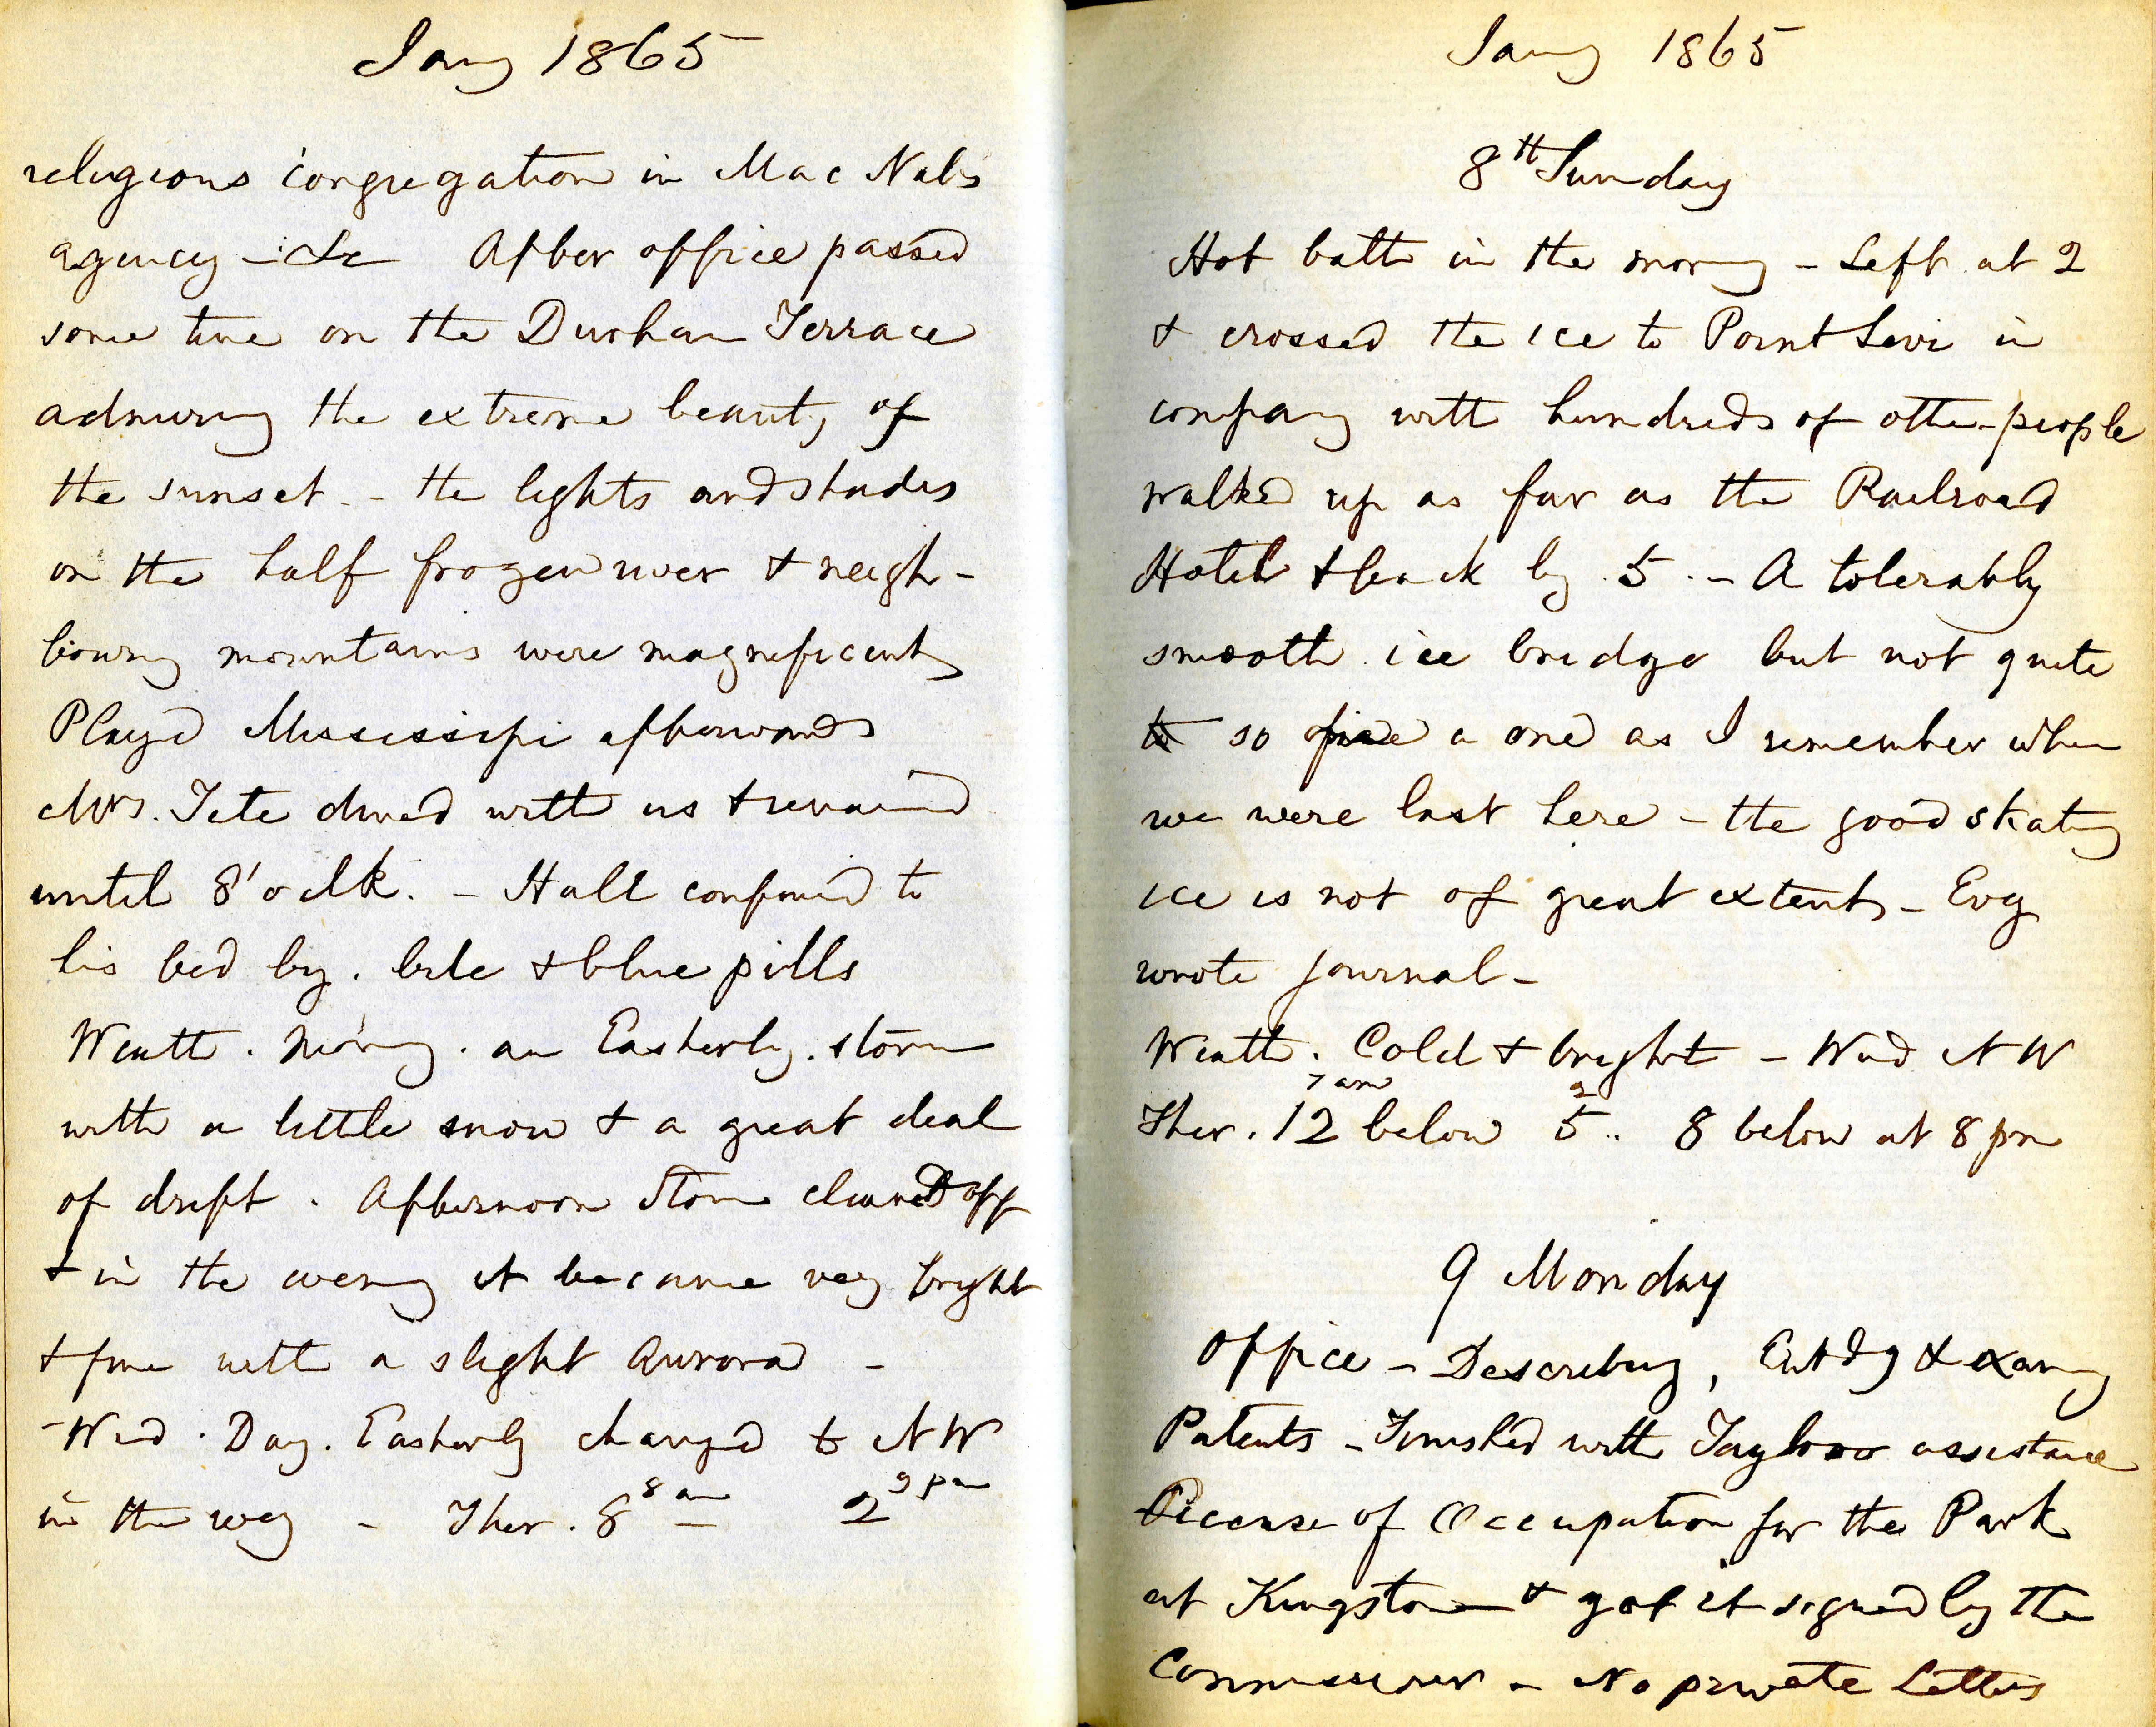 Jany 1865
religious congregation in Mac Nabs
agency - &c After office passed
some time on the Durham Terrace
admiring the extreme beauty of
the sunset - the lights and shades
on the half frozen river & neigh-
bouring mountains were magnificent
Playd Mississipi afterwards
Mrs. Tete dined with us & remained
until 8'oclk. - Hall confined to
his bed by. bile & blue pills
Weath. Morng. an Easterly. storm
with a little snow & a great deal
of drift. Afternoon storm cleared off
& in the eveng it became very bright
& fine with a slight Aurora -
- Wind. Day. Easterly changed to NW
in the evg - Ther. 8 8 am 2 9 pm
Jany 1865
8th Sunday
Hot bath in the morng - Left at 2
& crossed the ice to Point Levi in
company with hundreds of other people
walked up as far as the Railroad
Hotel & back by 5. - A tolerably
smooth ice bridge but not quite
to so fine a one as I remember when
we were last here - the good skating
ice is not of great extent - Evg
wrote journal -
Weath. Cold & bright - Wind NW
7 am 2
Ther. 12 below 5.. 8 below at 8 pm
9 Monday
Office - Describing, & examg
Patents - Finished with Taylors assistance
License of Occupation for the Park
at Kingston & got it signed by the
Commissioner - No private Letters